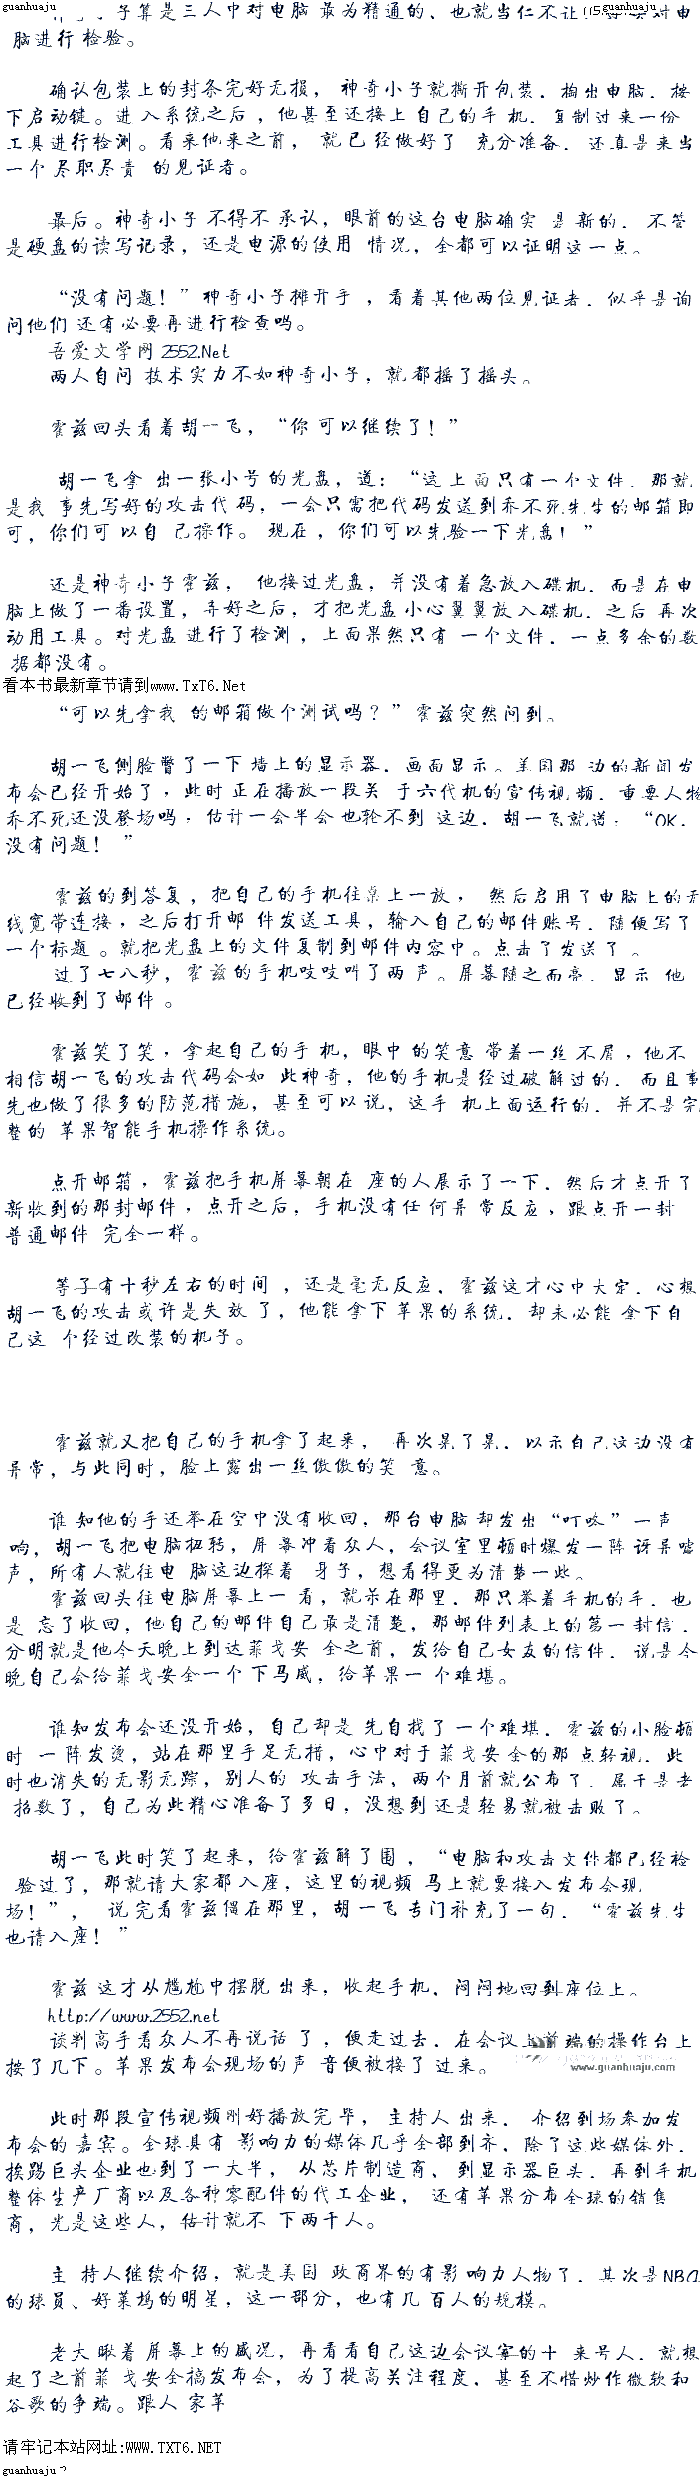 guanhuaju
guanhuaju
子算是三人中对电脑 最为精通的、也就当仁不让
脑进行 检验。
确认包装上的封条完好无损， 神奇小子就撕开包装．掏出电脑．按
下启动键。进 入系统之后 ，他甚至还接上 自己的手 机．复制过来一份
工具进行检测。看来他来之前， 就已 经做好了 充分准备．还真是来当
一个 尽职尽责 的见证者。
最后。神奇小子 不得不 承认，眼前的这台电脑确实 是 新的．不管
是硬盘的读写记录，还是电源的使用 情况，全都可以证明这一点。
“没有问题！”神奇小子摊开手 ，看着其他两位见证者．似乎是询
问他们 还有必要再进行检查吗。
吾爱文学网 2552.Net
两人自问 技术实力不如神奇小子，就 都摇了摇头。
霍兹回头看着胡一飞，“你 可以继续了！”
胡一飞拿 出一张小号 的光盘，道：“这 上 面只有一个文件．那就
是我 事先写好的攻击代码，一会只需把代码发送到乔不死先生的邮箱即
可，你们可 以自 己操作。 现在 ，你们可以先验一下光盘！”
还是神奇小子霍兹， 他接过光盘，并没有着急放入碟机．而是在电
脑上做了一番设置，弄好之后，才把光盘小心翼翼放 入碟机．之后 再次
动用工具。对光盘 进行了检测 ，上面果然只有 一个文件．一点多余的数
据都没有。
看本书最新章节请到www.TxT6.Net
“可以先拿我 的邮箱做个测试吗？”霍兹突然问到。
胡一飞侧脸瞥了一下 墙上的显示器．画面显示。美国那 边的新闻发
布会已经开始了，此时 正在播放一段关 于六代机的宣传视频．重要人物
乔不死还没登场吗，估计一会半会 也轮不到 这边．胡一飞就道：“OK．
没有问题！ ”
霍兹的到答复，把自己的手机往桌上一放， 然后启用了电脑上的无
线宽带连接，之后打开邮 件发送工具，输入自己的邮件账号．随便写了
一个标题 。就把光盘上的文件复制到邮件内容中。点击了发送了 。
过了七八秒，霍 兹的手机吱吱叫了两 声。屏幕随之而亮．显示 他
已经收到了邮件 。
霍兹笑了笑，拿起自己的手 机，眼中 的笑意 带着一丝 不屑 ，他不
相信胡一飞的攻击代码会如 此神奇，他的手机是经过破 解过的．而且事
先也做了很多的防范措施，甚至可以说，这手 机上面运行的．并不是完
整的 苹果智能手机操作系统。
点开邮箱 ，霍兹把手机屏幕朝在 座的人展示了一下．然后才点开了
新收到的那封邮件 ，点开之后，手机没有任 何异 常反应 ，跟点开一封
普通邮件 完全一样。
等了有十秒左右的时间 ，还是毫无反应．霍兹这才心中大定．心想
胡一飞的攻击或许是失效 了，他能 拿下 苹果的系统．却未必能 拿下自
己这 个经过改装的机子。
霍兹就又把自己的手机拿了起来， 再次晃了晃．以示自己这边没有
异常，与此同时，脸上露出一丝傲傲的笑 意。
谁 知他的手还举在空中没有收回，那台电脑 却发出“叮咚”一声
响，胡一飞把电脑扭转，屏 幕冲着众人，会议室里顿时爆发一阵 讶异嘘
声，所有人就往电 脑这边探着 身子，想看得更为清楚一些。
霍兹回头往电脑屏幕上一 看，就杀在那里．那只举着手机的手．也
是 忘了收回，他自己的邮件自己最是清楚，那邮件列表上的第一 封信．
分明就是他今天晚上到达菲戈安 全之前，发给自己女友的信件． 说是今
晚自己会给菲戈安全一个 下马威，给苹果一 个难堪。
谁知发布会还没开始，自己却是 先自找了 一个难堪．霍兹的小脸顿
时 一 阵发烫，站在那里手足无措，心中对于菲戈安 全的那 点轻视．此
时也消失的无影无踪，别人的 攻击手法，两个月前就公布了．属于是老
招数了，自己为此精心准备了多日，没想到还是轻易就被击败了。
胡一飞此时笑了起来，给霍兹解了围 ，“电脑和攻击文件都已经检
验过了，那就请大家都 入座，这里的视频 马上就要接入发布会现
场！”， 说完看霍兹僵在那里，胡一飞 专门补充了一句．“霍兹先生
也请入座！”
霍兹 这才从尴尬中摆脱 出来，收起手机．闷闷地回到座位上。
http://www.2552.net
谈判高手看众人不再说话 了 ，便走过去．在会议 前端的操作台上
按了几下。苹果发布会现场的声 音便被接了 过来。
www.guanhuaju.com
此时那段宣传视频刚好播放完毕，主持人 出来． 介绍到场参加发
布会的 嘉宾。全球具有 影响力的媒体几乎全部到齐．除了这些媒体外．
挨踢巨头企业也到了一大半， 从芯片制造商、到显示器巨头．再到手机
整体生产厂商以及各种零配件的代工企业， 还有苹果分布全球的销售
商，光是这些人，估计就不 下两千人。
主 持人继续介绍，就是美国 政商界的有影 响力人物了．其次是NBA
的球员、好莱坞的明星，这一部分，也有几 百人的规模。
老大 瞅着 屏幕上的盛况，再看看自己这边会议室的十 来号人．就想
起了之前菲 戈安全搞发布会，为了提高关注程度．甚至不惜炒作微软和
谷歌的争端。跟人 家苹
请牢记本站网址:WWW.TXT6.NET
guanhuaju